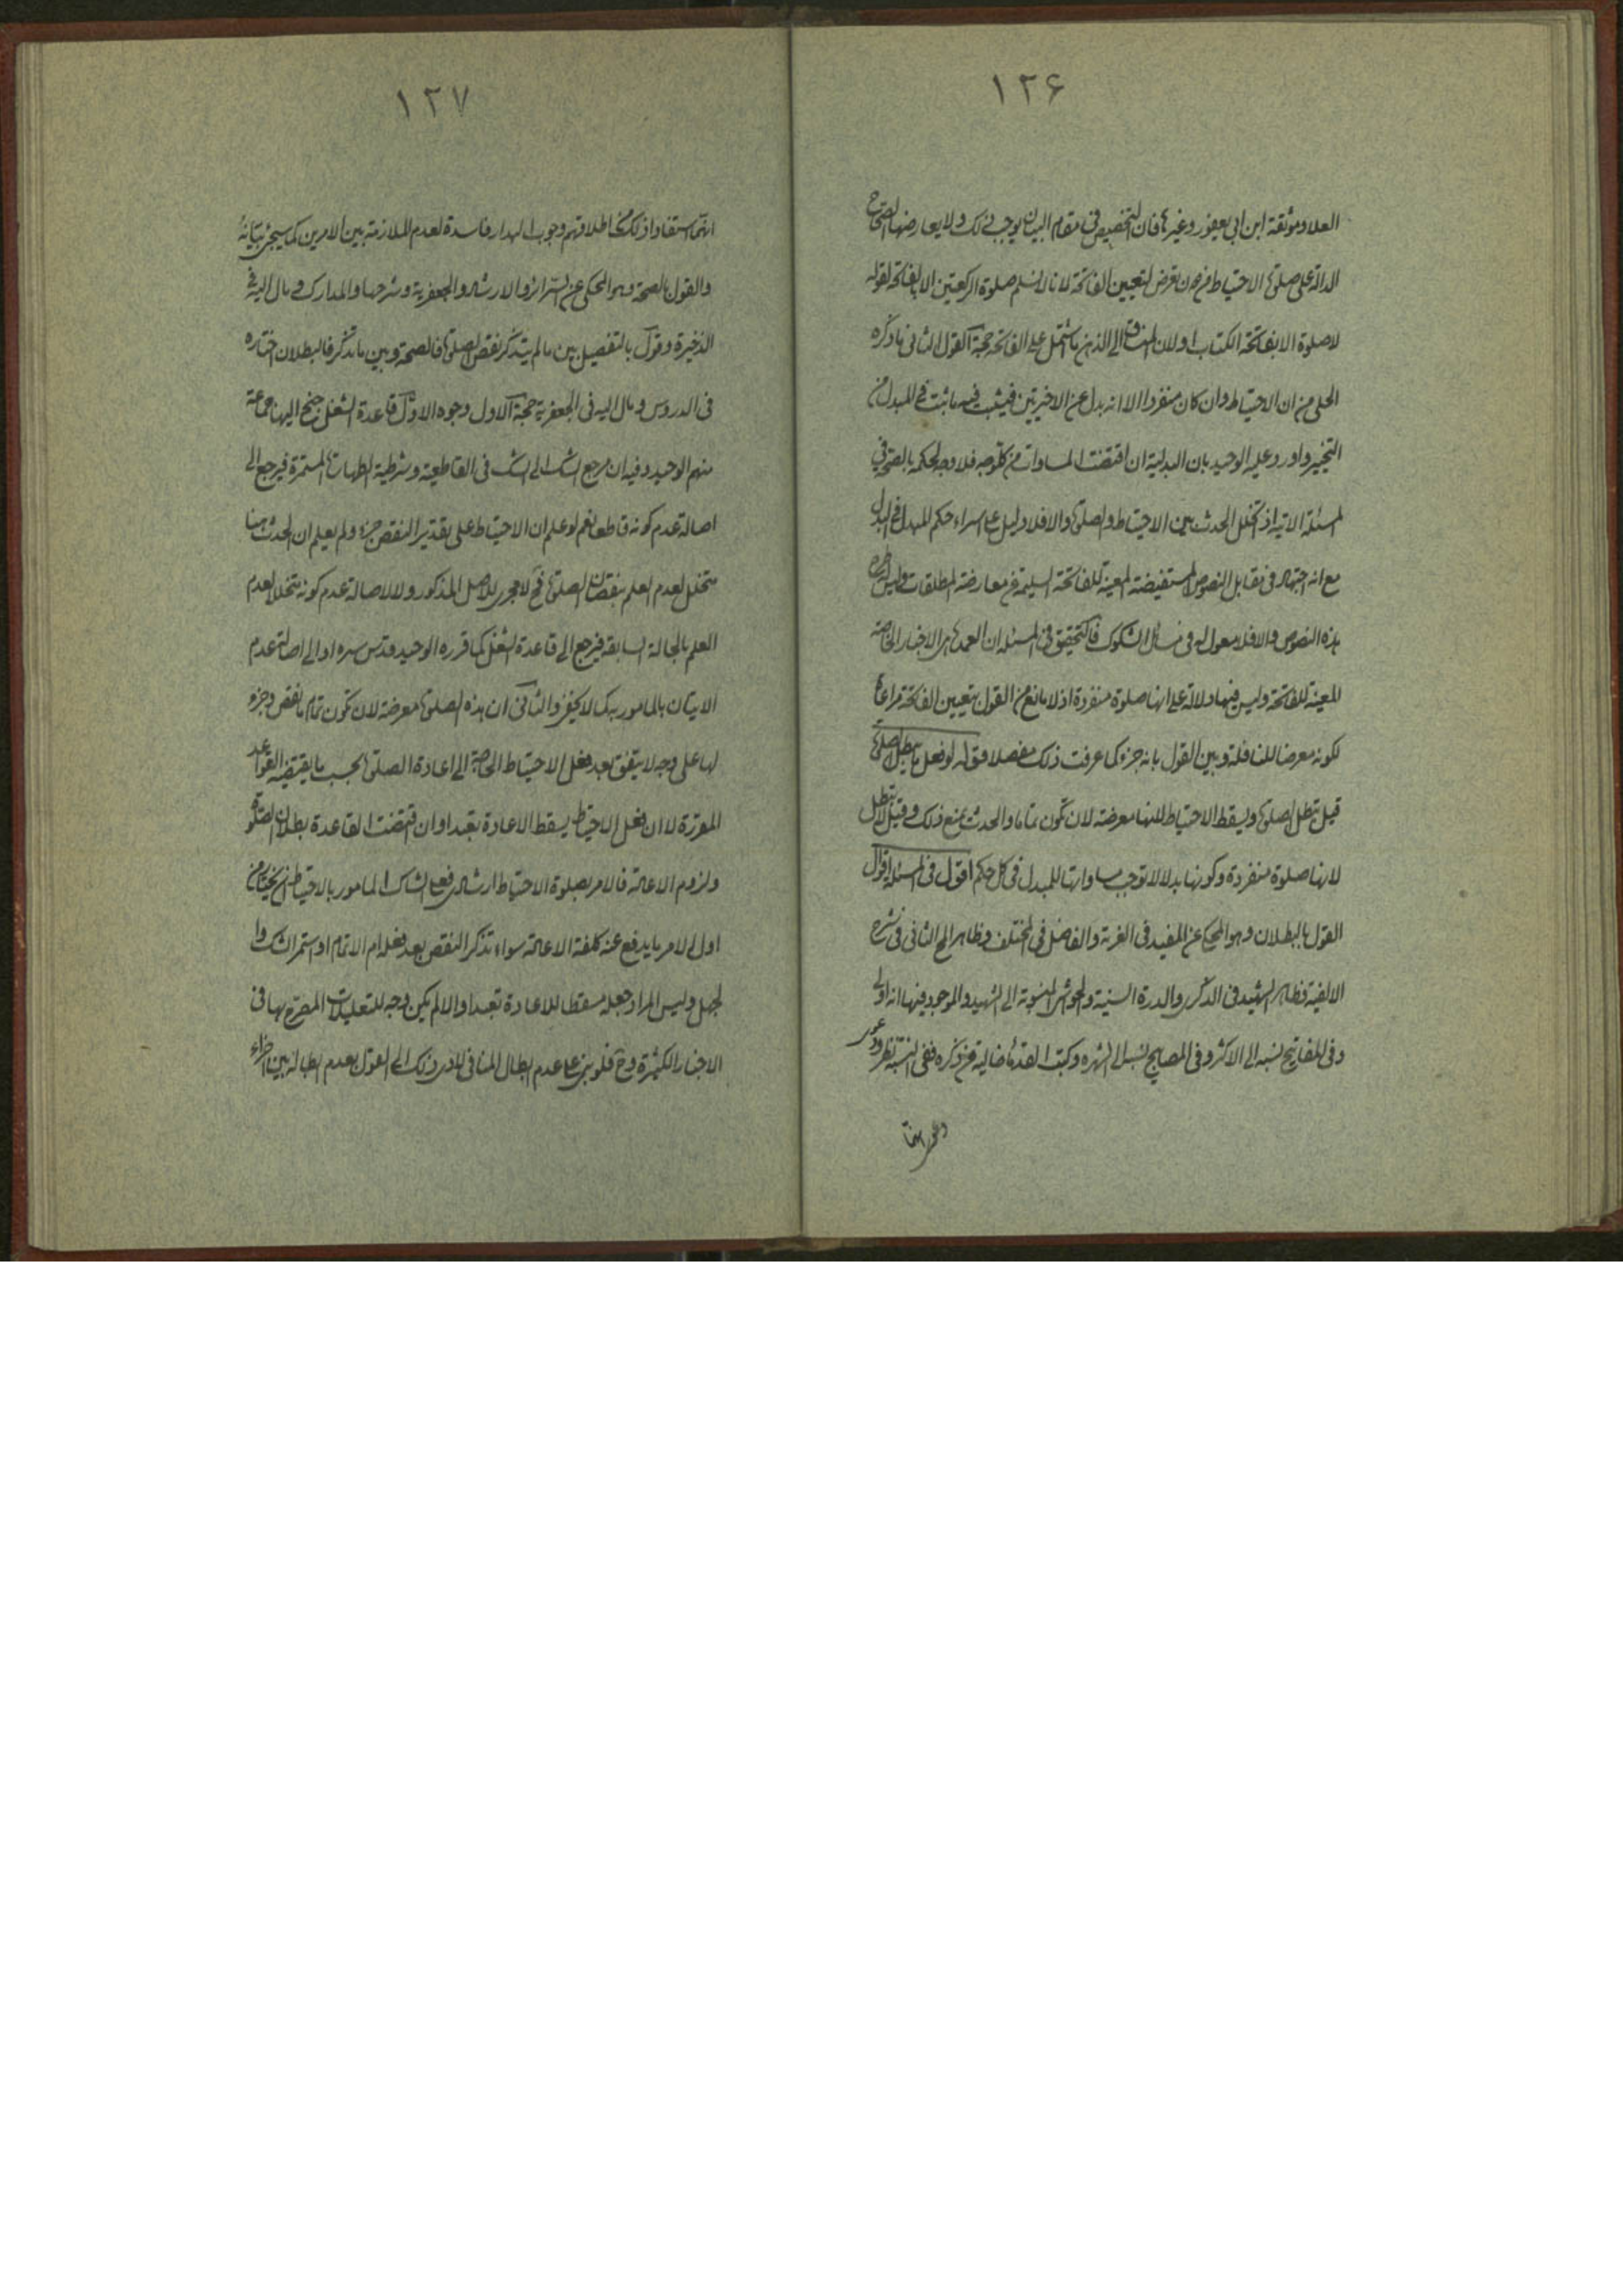 ١٢۶
العلا وموثقة ابن ابى يعفور وغيرها فان التخصيص فى مقام البيان يوجب ذلك ولا يعارضها الصحاح
الدالة على صلوة الاحتياط من دون تعرض لتعيين الفاتحة لانا لا نسلم صلوة الركعتين الا بالفاتحة لقوله
لا صلوة الا بفاتحة الكتاب ولان المنساق الى الذهن ما اشتمل على الفاتحة حجة القول الثانى ما ذكره
الحلى من ان الاحتياط وان كان منفردا الا انه بدل عن الاخيرتين فيثبت فيه ما ثبت فى المبدل من
التخيير واورد عليه الوحيد بان البدلية ان اقتضت المساوات من كل وجه فلا وجه لحكمه بالصحة فى
المسئلة الاتية اذ تخلل الحدث بين الاحتياط والصلوة والا فلا دليل على اسراء حكم المبدل فى البدل
مع انه اجتهاد فى مقابل النصوص المستفيضة المعينة للفاتحة السليمة عن معارضة المطلقات وليس
هذه النصوص والا فلا معول له فى مسائل الشكوك فالتحقيق فى المسئلة ان العمدة هى الاخبار الخاصة
المعينة للفاتحة وليس فيها دلالة على انها صلوة منفردة اذ لا مانع من القول بتعيين الفاتحة مراعاة
لكونه معرضا للنافلة وبين القول بانه جزء كما عرفت ذلك مفصلا قوله لو فعل ما يبطل الصلوة
قيل تبطل الصلوة ويسقط الاحتياط لانها معرضة لان تكون تماما والحدث يمنع ذلك وقيل لا تبطل
لانها صلوة منفردة وكونها بدلا لا توجب مساواتها للمبدل فى كل حكم اقول فى المسئلة اقوال
القول بالبطلان وهو المحكى عن المفيد فى الغرية والفاضل فى المختلف وظاهر المح الثانى فى شرح
الالفية وظاهر الشهيد فى الذكرى والدرة السنية والحواشى المنسوبة الى الشهيد والموجود فيها انه اولى
وفى المفاتيح نسبه الى الاكثر وفى المصابيح نسبه الى الشهرة وكتب القدماء خالية عن ذكره ففى النسبة نظر
١٢٧
انهم استفادوا ذلك من اطلاقهم وجوب البدار فاسدة لعدم الملازمة بين الامرين كما سيجئ بيانه
والقول بالصحة وهو المحكى عن السرائر والارشاد والجعفرية وشرحها والمدارك ومال اليه فى
الذخيرة وقول بالتفصيل بين ما لم يتذكر نقص الصلوة فالصحة وبين ما تذكر فالبطلان اختاره
فى الدروس ومال اليه فى الجعفرية حجة الاول وجوه الاول قاعدة الشغل جنح اليها جماعة
منهم الوحيد وفيه ان مرجع الشك الى الشك فى القاطعية وشرطية الطهارة المستمرة فيرجع الى
اصالة عدم كونه قاطعا نعم لو علم ان الاحتياط على تقدير النقص جزء ولم يعلم ان الحدث هنا
متخلل لعدم العلم بنقصان الصلوة فح لا مجرى للاصل المذكور ولا لاصالة عدم كونه متخللا لعدم
العلم بالحالة السابقة فيرجع الى قاعدة الشغل كما قرره الوحيد قدس سره او الى اصالة عدم
الاتيان بالمامور به كما لا يخفى والثانى ان هذه الصلوة معرضة لان تكون تمام ما نقص وجزء
لها على وجه لا يتفق بعد فعل الاحتياط الحاجة الى اعادة الصلوة بحسب ما يقتضيه القواعد
المقررة لا ان فعل الاحتياط يسقط الاعادة تعبدا وان اقتضت القاعدة بطلان الصلوة
ولزوم الاعادة فالامر بصلوة الاحتياط ارشاد رفع الشاك المامور بالاحتياط
اول الامر ما يدفع عنه كلفة الاعادة سواء تذكر النقص بعد فعله ام الاتمام او استمر الشك وا
لجهل وليس المراد جعله مسقطا للاعادة تعبدا والا لم يكن وجه للتعليلات المصرح بها فى
الاخبار الكثيرة وح فلو بنى على عدم ابطال المنافى لادى ذلك الى القول بعدم ابطاله بين اجزاء